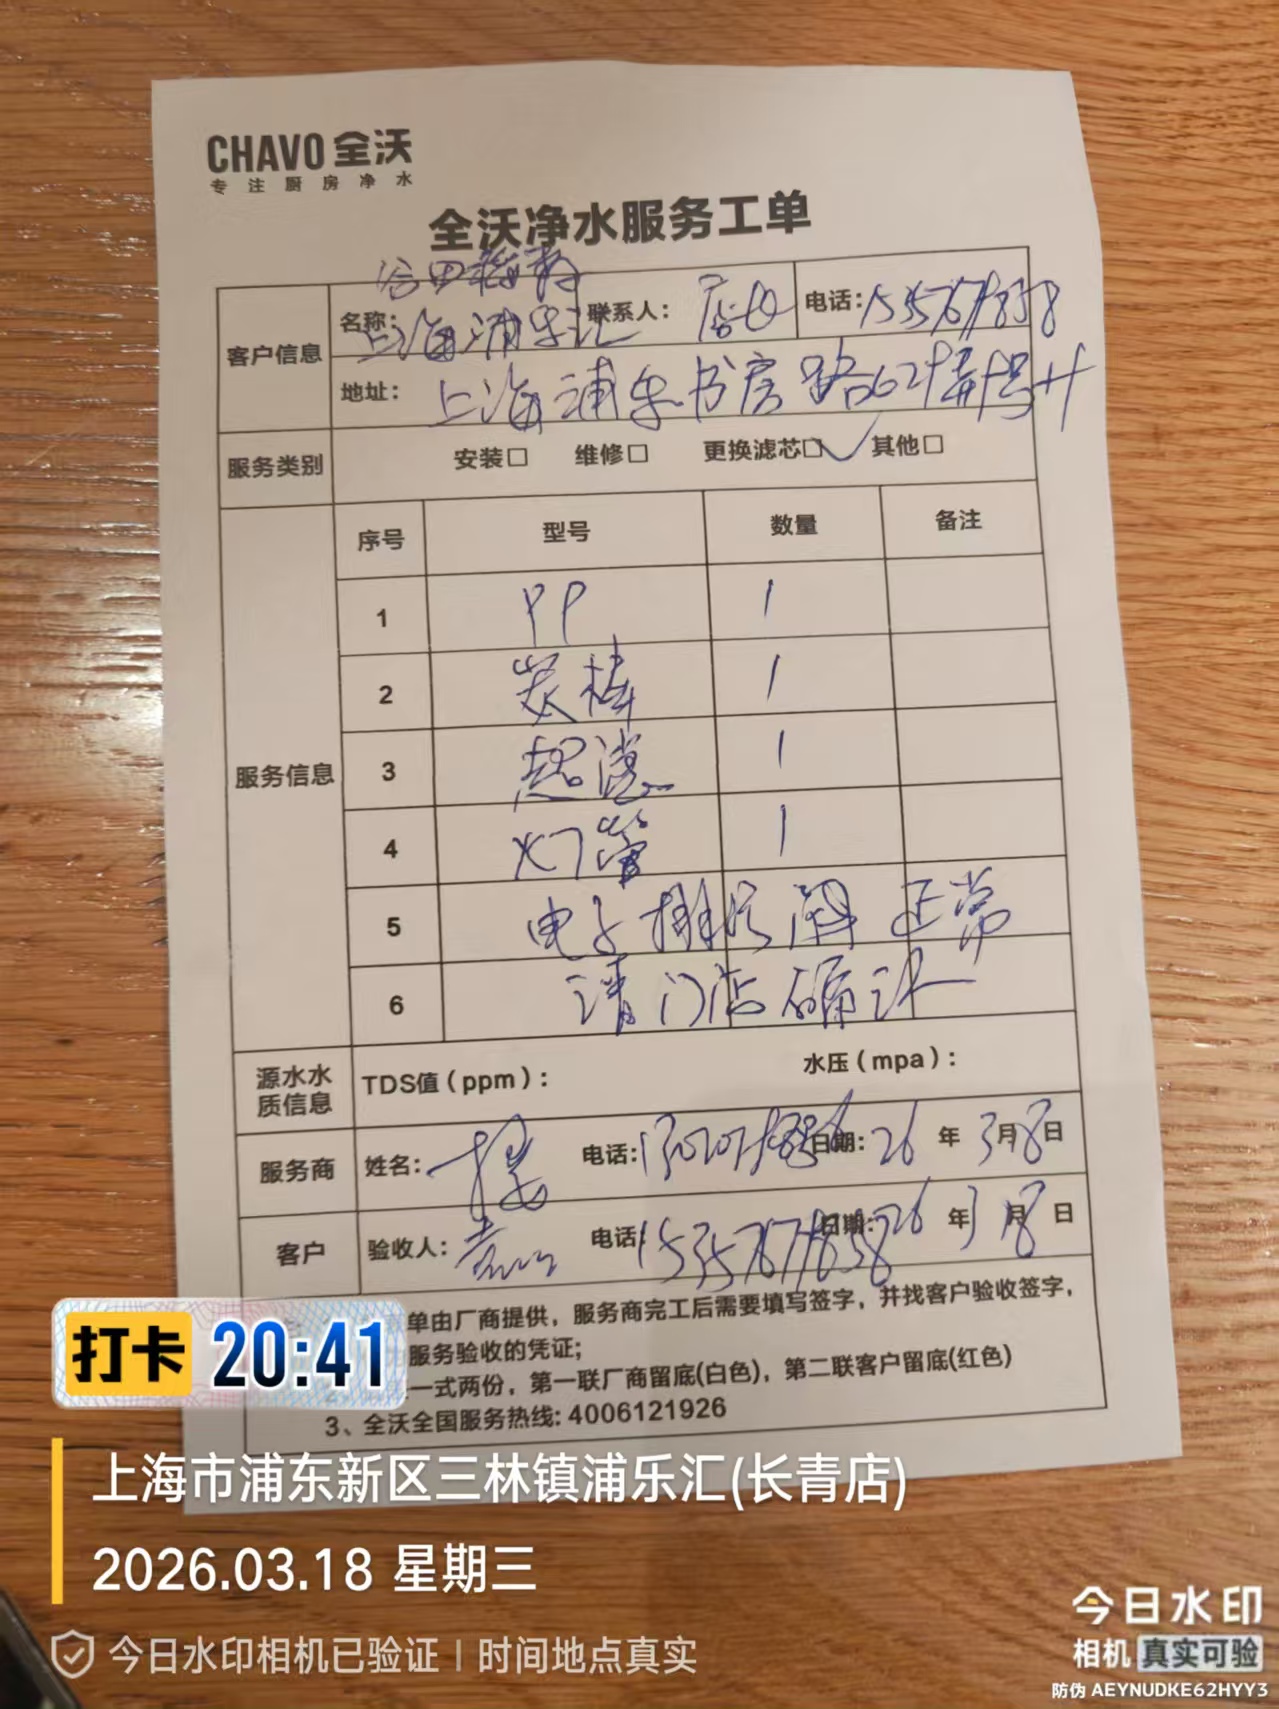 CHAVO 全沃
专注厨房净水
全沃净水服务工单
谷田稻香
客户信息 名称: 上海浦乐汇 联系人: 店长 电话: 15357671858
地址: 上海浦东书房路62弄号
服务类别 安装□ 维修□ 更换滤芯□✓ 其他□
服务信息 序号 型号 数量 备注
1 PP 1
2 炭棒 1
3 超滤 1
4 灯管 1
5 电子排污阀 正常
6 请门店确认
源水水质信息 TDS值(ppm): 水压(mpa):
服务商 姓名: 电话: 日期: 26年3月18日
客户 验收人: 电话: 15357671858 日期: 26年3月18日
单由厂商提供，服务商完工后需要填写签字，并找客户验收签字，
服务验收的凭证；
一式两份，第一联厂商留底(白色)，第二联客户留底(红色)
3、全沃全国服务热线: 4006121926
打卡 20:41
上海市浦东新区三林镇浦乐汇(长青店)
2026.03.18 星期三
今日水印相机已验证 | 时间地点真实
今日水印
相机 真实可验
防伪 AEYNUDKE62HYY3